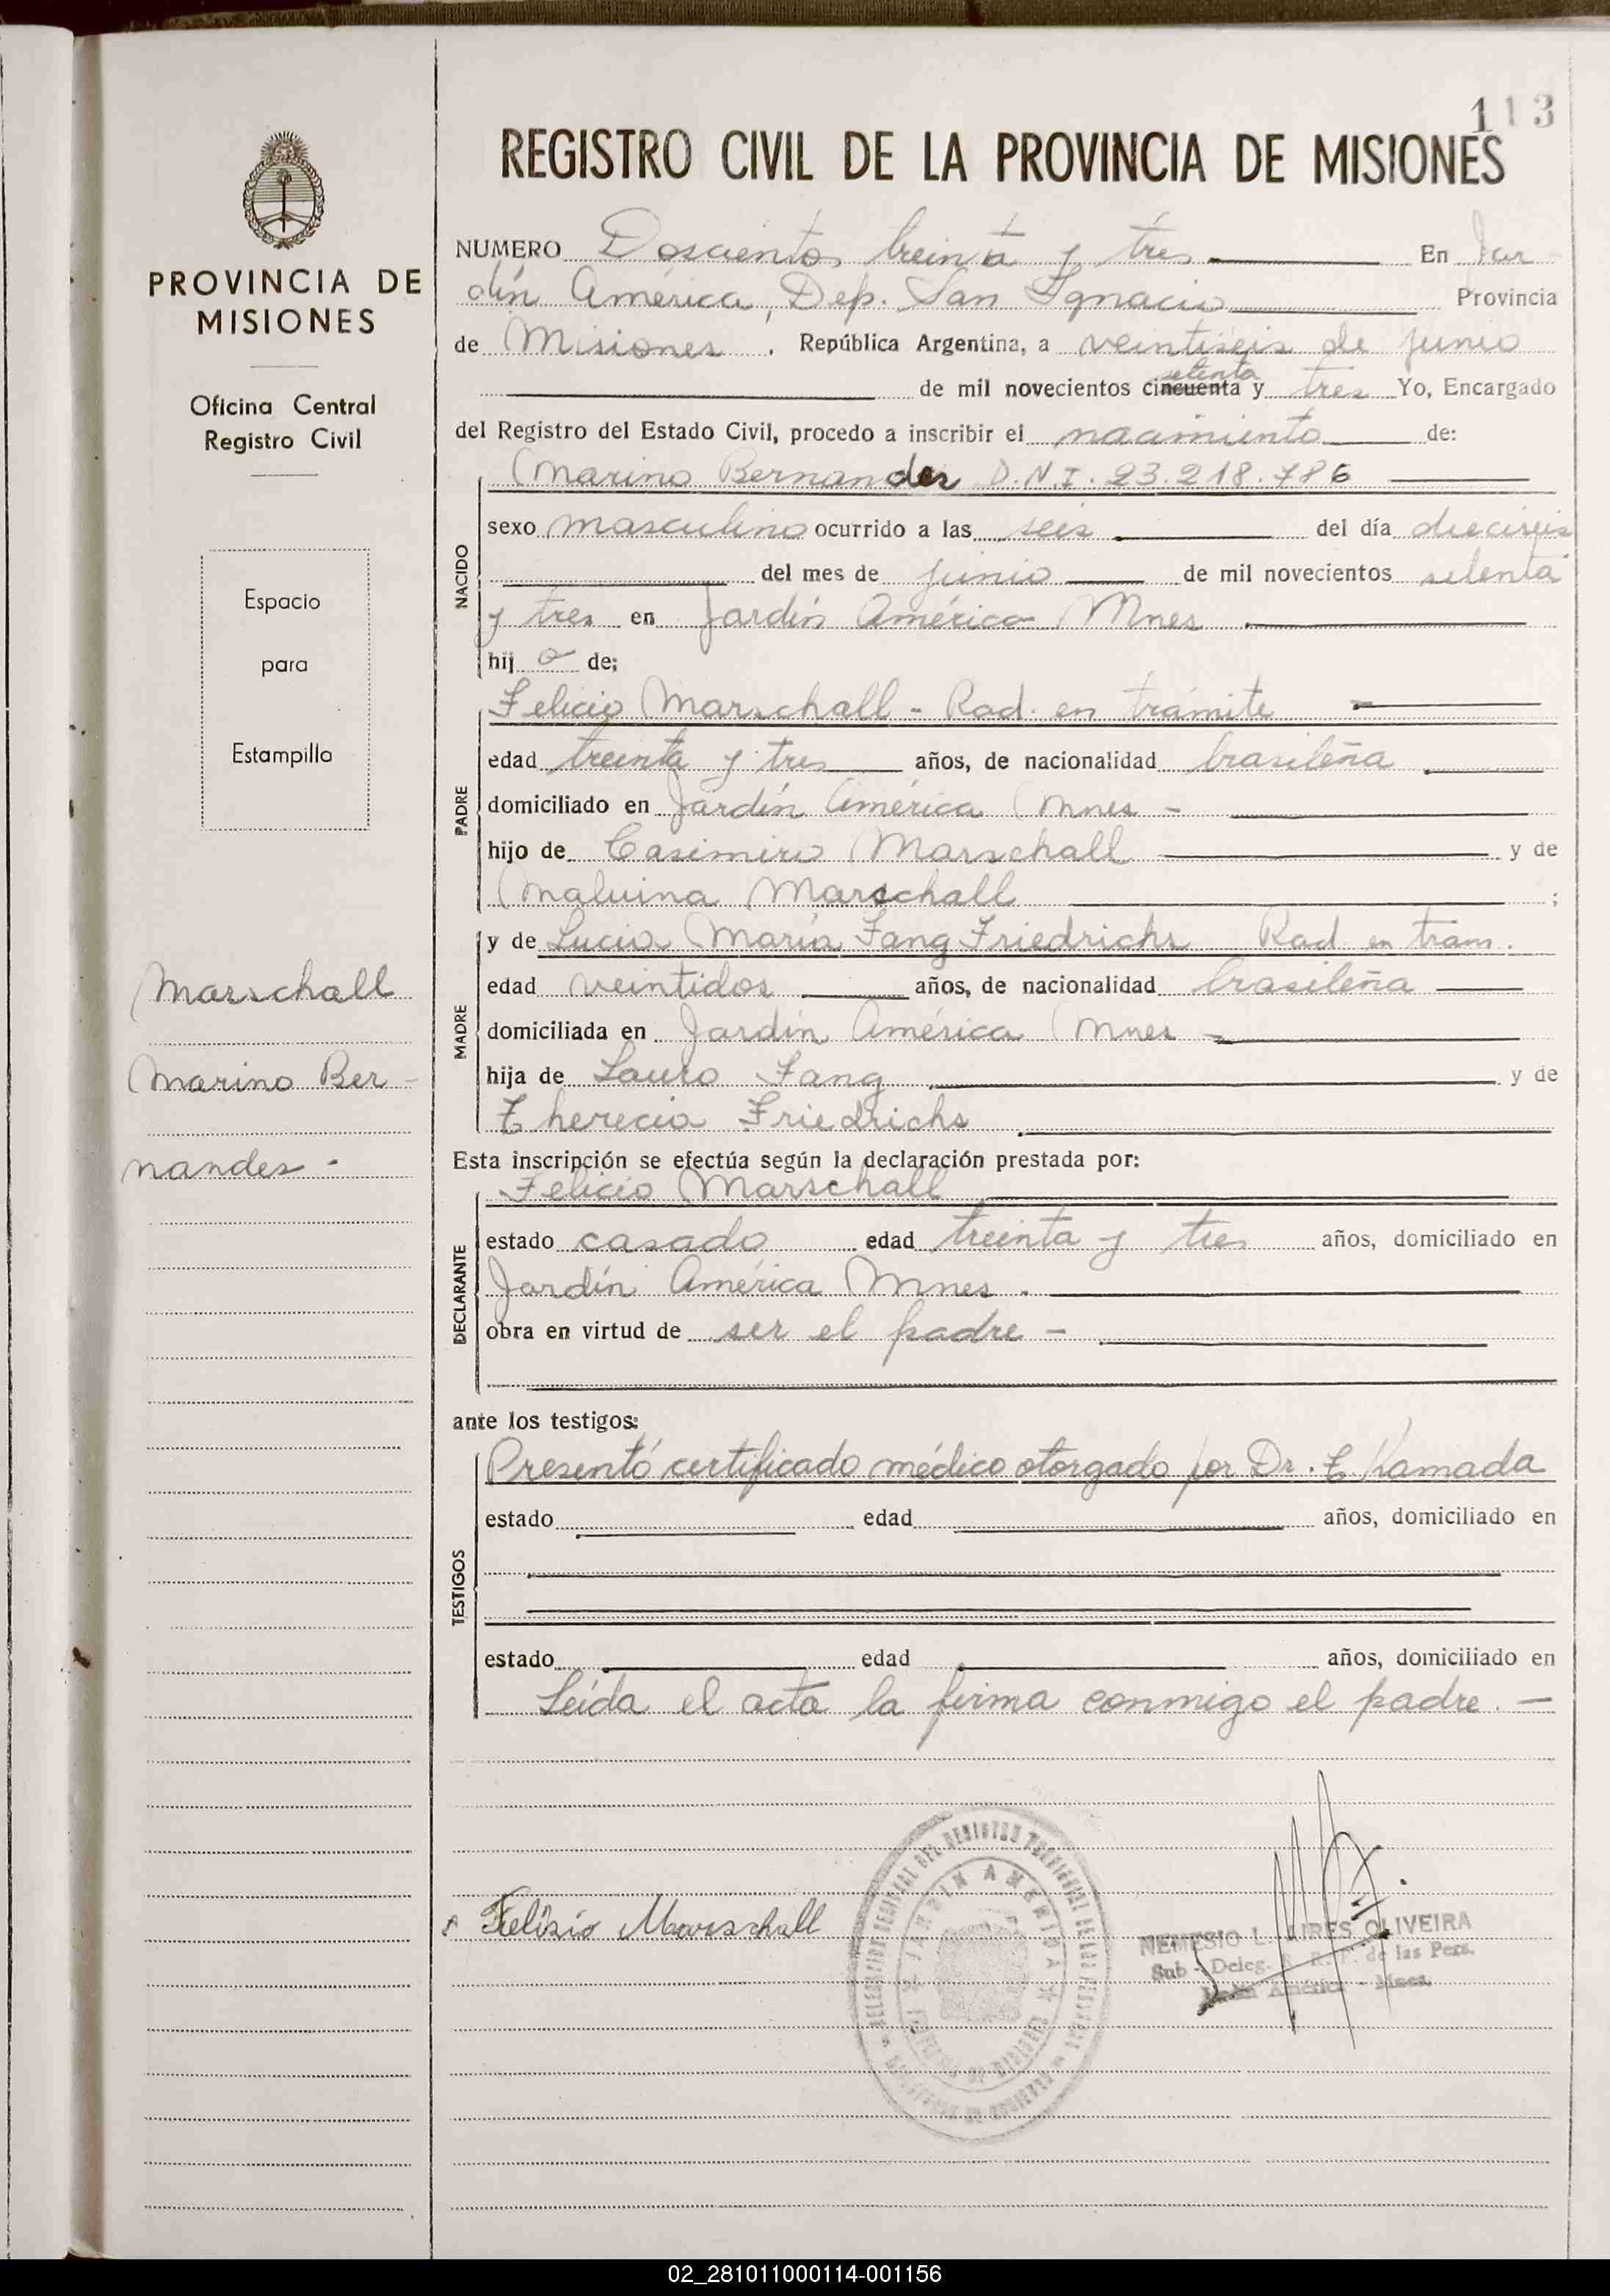 113
REGISTRO CIVIL DE LA PROVINCIA DE MISIONES
PROVINCIA DE
MISIONES
Oficina Central
Registro Civil
Espacio
para
Estampilla
Marschall
Marino Ber-
nandes -
NUMERO Doscientos treinta y tres En Jar
dín América, Dep. San Ignacio Provincia
de Misiones . República Argentina, a veintiséis de junio
setenta
de mil novecientos cincuenta y tres Yo, Encargado
del Registro del Estado Civil, procedo a inscribir el nacimiento de:
NACIDO
Marino Bernandes D.N.I. 23.218.786
sexo masculino ocurrido a las seis del día dieciséis
del mes de junio de mil novecientos setenta
y tres en Jardín América Mnes
hijo de;
PADRE
Felicio Marschall - Rad. en trámite
edad treinta y tres años, de nacionalidad brasileña
domiciliado en Jardín América Mnes -
hijo de Casimiro Marschall y de
Maluina Marschall ;
MADRE
y de Lucia María Fang Friedrichs Rad en tram.
edad veintidos años, de nacionalidad brasileña
domiciliada en Jardín América Mnes -
hija de Lauro Fang y de
Therecia Friedrichs
Esta inscripción se efectúa según la declaración prestada por:
DECLARANTE
Felicio Marschall
estado casado edad treinta y tres años, domiciliado en
Jardín América Mnes.
obra en virtud de ser el padre -
ante los testigos:
TESTIGOS
Presentó certificado médico otorgado por Dr. T. Kamada
estado edad años, domiciliado en
estado edad años, domiciliado en
Leída el acta la firma conmigo el padre. -
Felisio Marschall
JARDIN AMERICA
NEMESIO L. AIRES OLIVEIRA
Sub - Deleg. R. P. de las Pers.
Jardín América - Mnes.
02_281011000114-001156